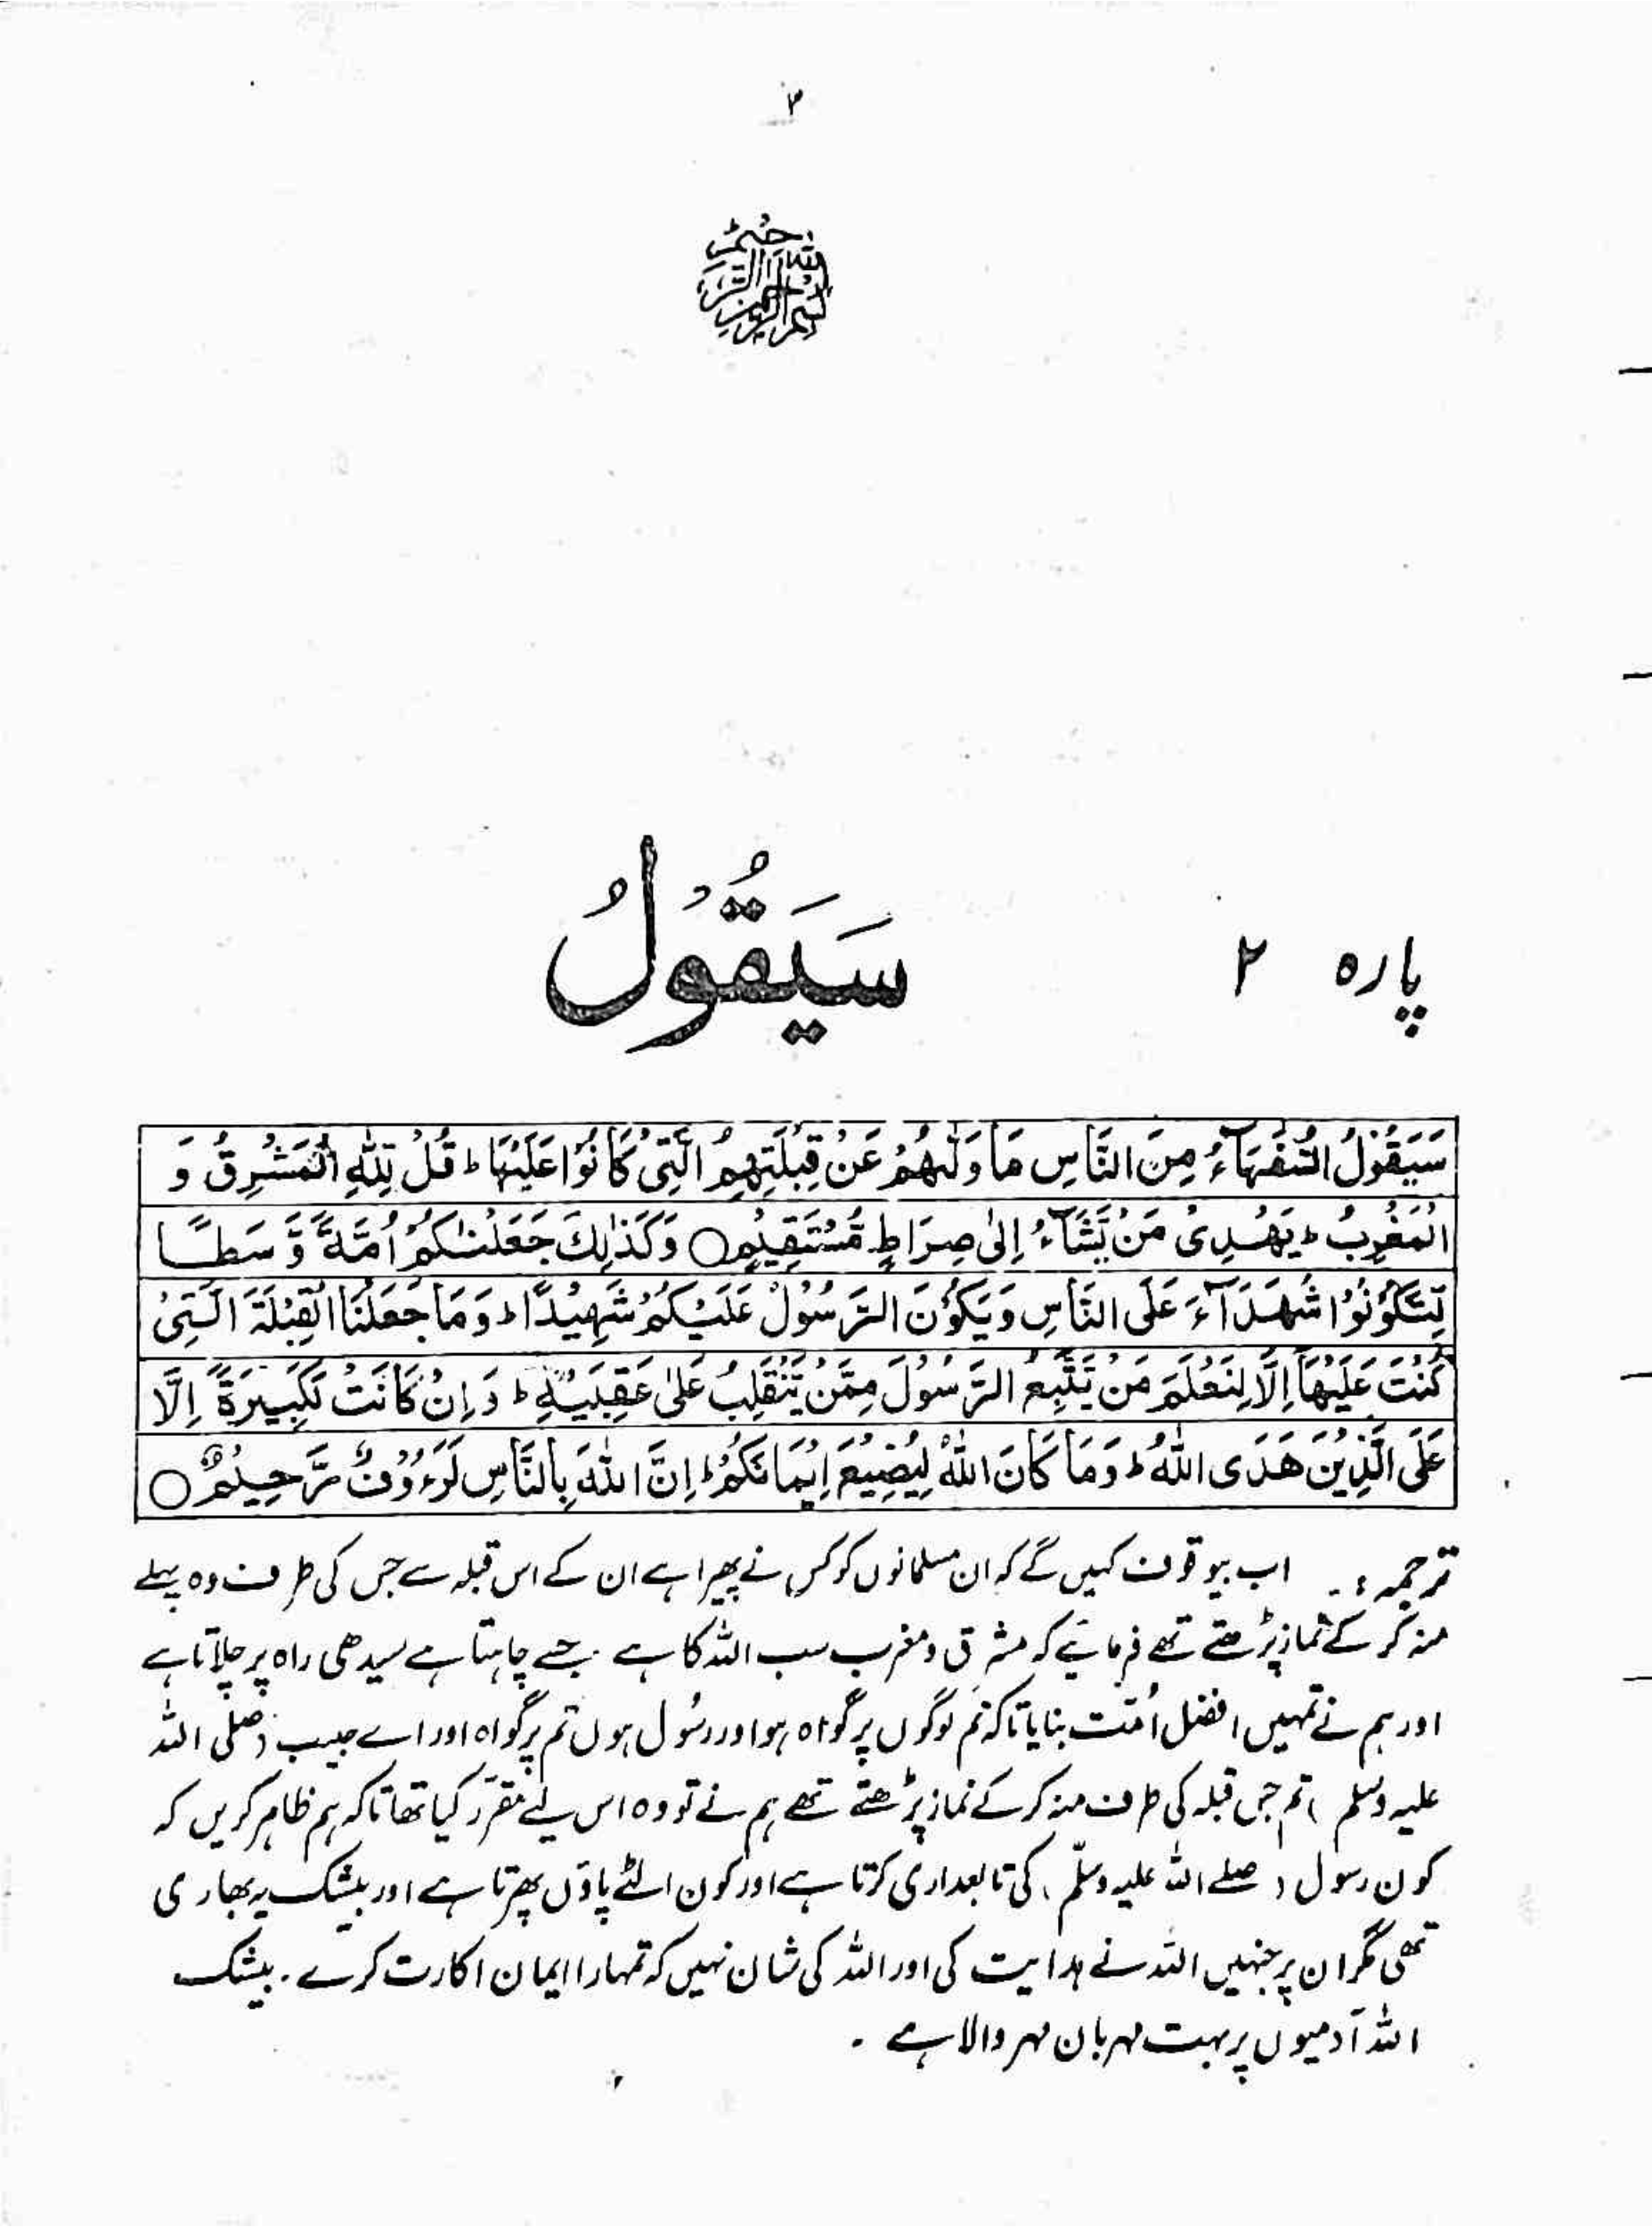 ۲
بسم الله الرحمن الرحيم
پارہ ۲ سَيَقُوْلُ
سَيَقُوْلُ السُّفَهَآءُ مِنَ النَّاسِ مَا وَلّٰىهُمْ عَنْ قِبْلَتِهِمُ الَّتِىْ كَانُوْا عَلَيْهَا ؕ قُلْ لِلّٰهِ الْمَشْرِقُ وَ
الْمَغْرِبُ ؕ يَهْدِىْ مَنْ يَّشَآءُ اِلٰى صِرَاطٍ مُّسْتَقِيْمٍ ○ وَكَذٰلِكَ جَعَلْنٰكُمْ اُمَّةً وَّسَطًا
لِّتَكُوْنُوْا شُهَدَآءَ عَلَى النَّاسِ وَيَكُوْنَ الرَّسُوْلُ عَلَيْكُمْ شَهِيْدًا ؕ وَمَا جَعَلْنَا الْقِبْلَةَ الَّتِىْ
كُنْتَ عَلَيْهَا اِلَّا لِنَعْلَمَ مَنْ يَّتَّبِعُ الرَّسُوْلَ مِمَّنْ يَّنْقَلِبُ عَلٰى عَقِبَيْهِ ؕ وَ اِنْ كَانَتْ لَكَبِيْرَةً اِلَّا
عَلَى الَّذِيْنَ هَدَى اللّٰهُ ؕ وَمَا كَانَ اللّٰهُ لِيُضِيْعَ اِيْمَانَكُمْ ؕ اِنَّ اللّٰهَ بِالنَّاسِ لَرَءُوْفٌ رَّحِيْمٌ ○
ترجمہ :۔ اب بیوقوف کہیں گے کہ ان مسلمانوں کو کس نے پھیرا ہے ان کے اس قبلہ سے جس کی طرف وہ پہلے
منہ کر کے نماز پڑھتے تھے فرمایئے کہ مشرق و مغرب سب اللہ کا ہے ۔ جسے چاہتا ہے سیدھی راہ پر چلاتا ہے
اور ہم نے تمہیں افضل اُمّت بنایا تاکہ تم لوگوں پر گواہ ہو اور رسُول ہوں تم پر گواہ اور اے حبیب (صلی اللہ
علیہ وسلم) تم جس قبلہ کی طرف منہ کر کے نماز پڑھتے تھے ہم نے تو وہ اس لئے مقرّر کیا تھا تاکہ ہم ظاہر کریں کہ
کون رسول (صلے اللہ علیہ وسلّم) کی تابعداری کرتا ہے اور کون الٹے پاؤں پھرتا ہے اور بیشک یہ بھاری
تھی مگر ان پر جنہیں اللہ نے ہدایت کی اور اللہ کی شان نہیں کہ تمہارا ایمان اکارت کرے ۔ بیشک
اللہ آدمیوں پر بہت مہربان مہر والا ہے ۔